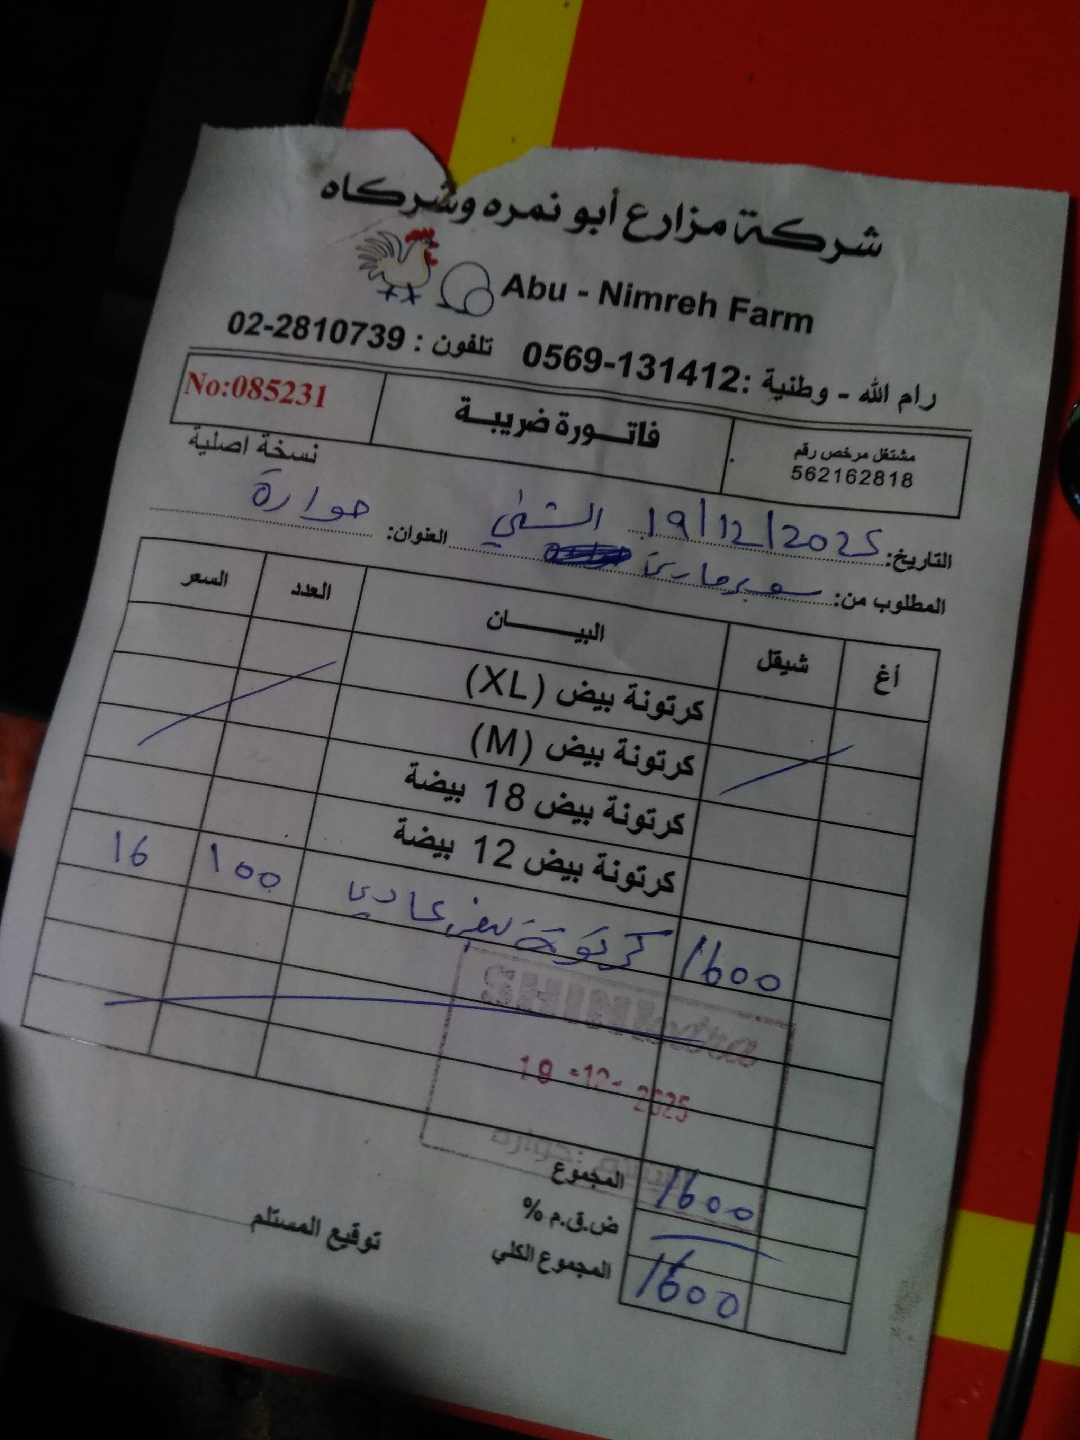 شركة مزارع أبو نمره وشركاه
Abu - Nimreh Farm
رام الله - وطنية :0569-131412 تلفون : 02-2810739
مشتغل مرخص رقم
562162818
فاتورة ضريبة
No:085231
نسخة اصلية
التاريخ: 19/12/2025
المطلوب من: سوبرماركت الشني العنوان: حوارة
أغ شيقل البيان العدد السعر
كرتونة بيض (XL)
كرتونة بيض (M)
كرتونة بيض 18 بيضة
كرتونة بيض 12 بيضة
1600 كرتونة بيض عادي 100 16
SHINI extra
19 -12- 2025
حوارة
المجموع 1600
ض.ق.م %
المجموع الكلي 1600
توقيع المستلم